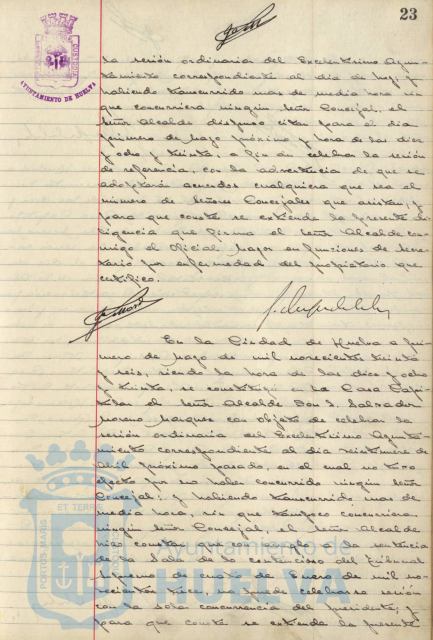 23
AYUNTAMIENTO DE HUELVA
la sesión ordinaria del Excelentísimo Ayun-
tamiento correspondiente al día de hoy, y
habiendo transcurrido mas de media hora sin
que concurriera ningún Señor Concejal, el
Señor Alcalde dispuso citar para el día
primero de Mayo próximo y hora de las diez
y ocho y treinta, a fin de celebrar la sesión
de referencia, con la advertencia de que se
adoptarán acuerdos cualquiera que sea el
número de Señores Concejales que asistan, y
para que conste se extiende la presente di-
ligencia que firma el Señor Alcalde con-
migo el Oficial Mayor en funciones de Secre-
tario por enfermedad del propietario que
certifico.
En la Ciudad de Huelva a pri-
mero de Mayo de mil novecientos treinta
y seis, siendo la hora de las diez y ocho
y treinta, se constituyó en la Casa Capi-
tular el Señor Alcalde Don S. Salvador
Moreno Marquez con objeto de celebrar la
sesión ordinaria del Excelentísimo Ayunta-
miento correspondiente al día veintinueve de
Abril próximo pasado, en el cual no tuvo
efecto por no haber concurrido ningún Señor
Concejal; y habiendo transcurrido mas de
media hora, sin que tampoco concurriera
ningún Señor Concejal, el Señor Alcalde
hizo constar que con arreglo a la sentencia
de la Sala de lo contencioso del Tribunal
Supremo de cuatro de Enero de mil no-
vecientos trece, no puede celebrarse sesión
con la sola concurrencia del presidente; y
para que conste se extiende la presente
PORTUS MARIS
ET TERRAE
Ayuntamiento de
HUELVA